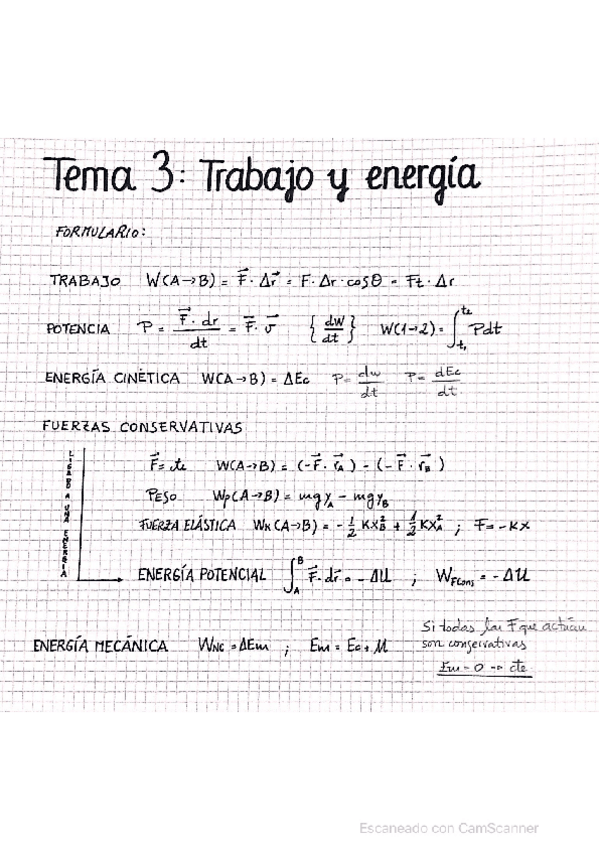 Tema 3: Trabajo y energía
FORMULARIO:
TRABAJO W(A→B) = F⃗ · Δr⃗ = F · Δr · cosθ = Ft · Δr
POTENCIA P = F⃗ · dr⃗ / dt = F⃗ · v⃗ { dW / dt } W(1→2) = ∫_{t₁}^{t₂} Pdt
ENERGÍA CINÉTICA W(A→B) = ΔEc P = dw / dt P = dEc / dt
FUERZAS CONSERVATIVAS
LIGADA A UNA ENERGÍA
F⃗ = cte W(A→B) = (-F⃗ · r⃗_A) - (-F⃗ · r⃗_B)
PESO Wp(A→B) = mgy_A - mgy_B
FUERZA ELÁSTICA W_K(A→B) = - 1/2 KX²_B + 1/2 KX²_A ; F = -KX
ENERGÍA POTENCIAL ∫_A^B F⃗ · dr⃗ = - ΔU ; W_Fcons = - ΔU
ENERGÍA MECÁNICA W_NC = ΔEm ; Em = Ec + U
Si todas las F que actúan
son conservativas
Em = 0 → cte
Escaneado con CamScanner